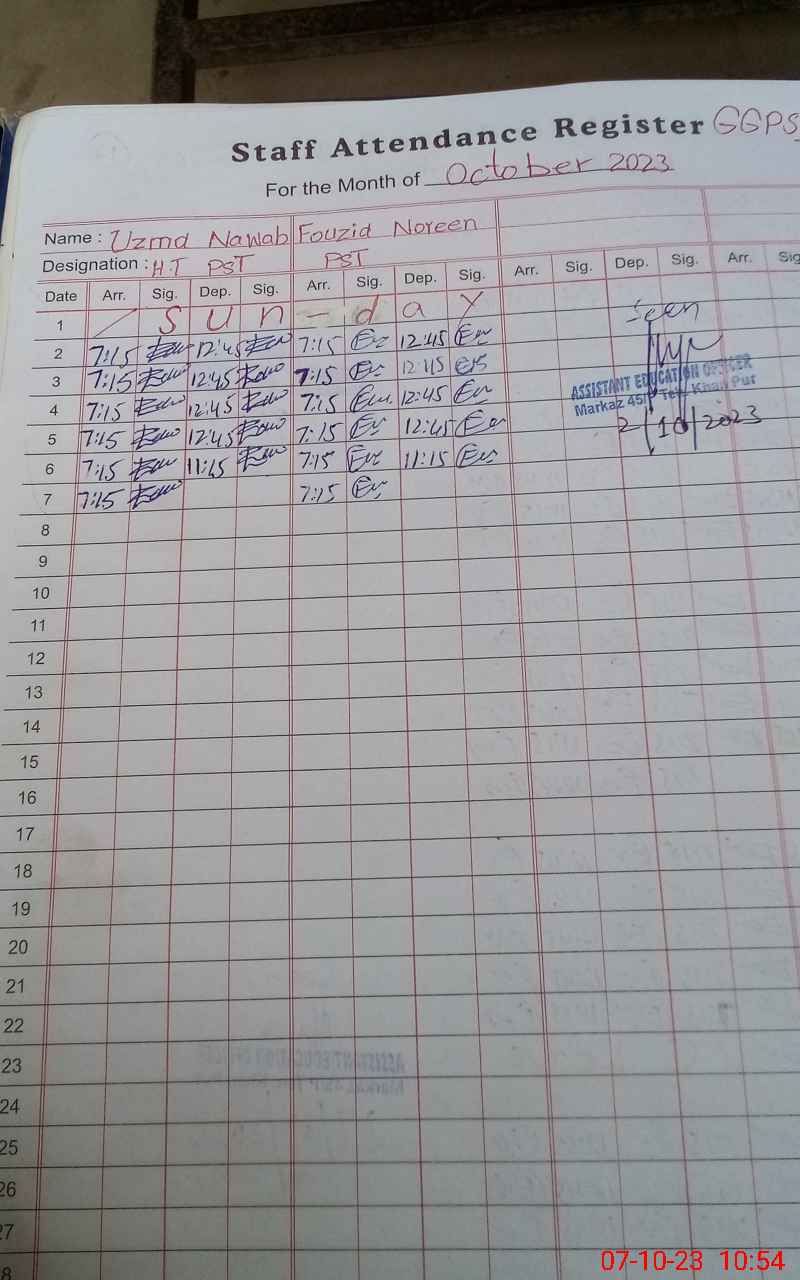 Staff Attendance Register GGPS
For the Month of October 2023
Name : Uzmd Nawab Fouzid Noreen
Designation : H.T PST PST
Date Arr. Sig. Dep. Sig. Arr. Sig. Dep. Sig. Arr. Sig. Dep. Sig. Arr. Sig
1 S u n - d a y Seen
2 7:15 12:45 7:15 12:45
3 7:15 12:45 7:15 12:45
ASSISTANT EDUCATION OFFICER
Markaz 45/P Teh. Khan Pur
4 7:15 12:45 7:15 12:45
2/10/2023
5 7:15 12:45 7:15 12:45
6 7:15 11:15 7:15 11:15
7 7:15 7:15
8
9
10
11
12
13
14
15
16
17
18
19
20
21
22
23
24
25
26
27
8
07-10-23 10:54